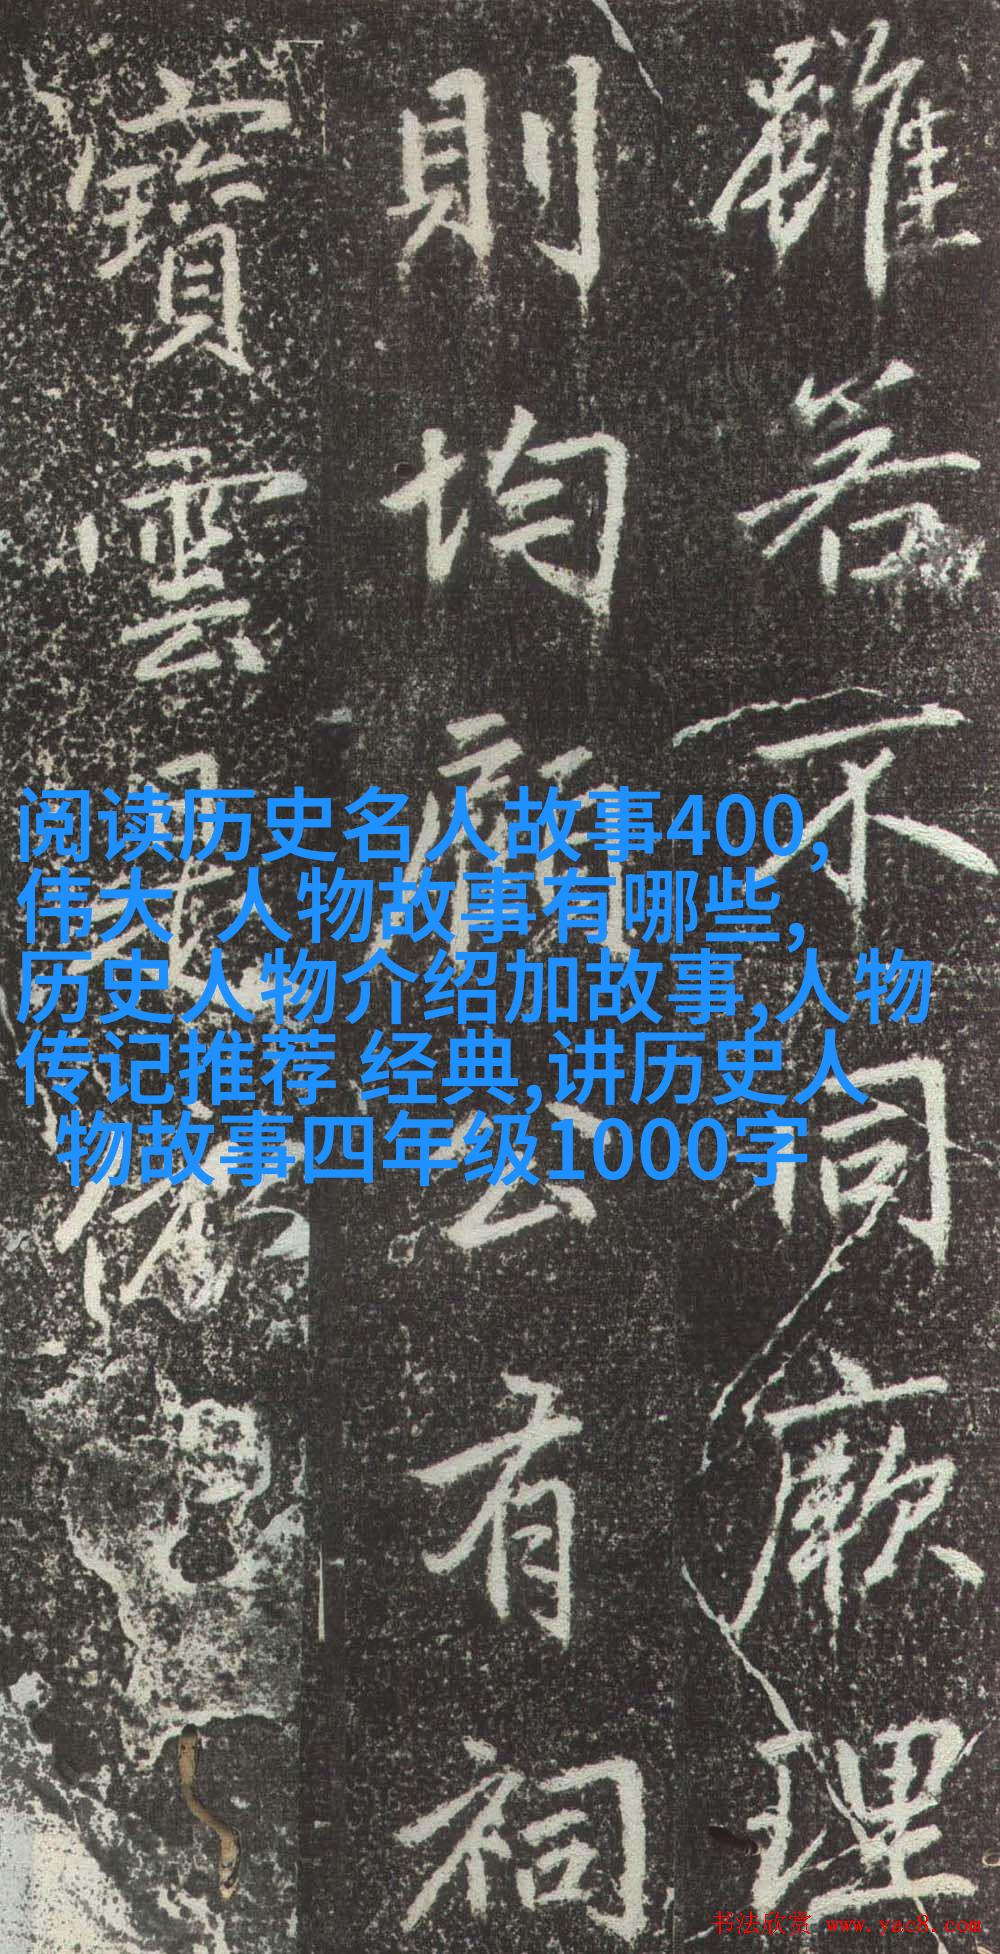 雖若不同厥理
則均顏公有祠
寶雲
阅读历史名人故事400,
伟大 人物故事有哪些,
历史人物介绍加故事,人物
传记推荐 经典,讲历史人
物故事四年级1000字
书法欣赏 www.yac8.com